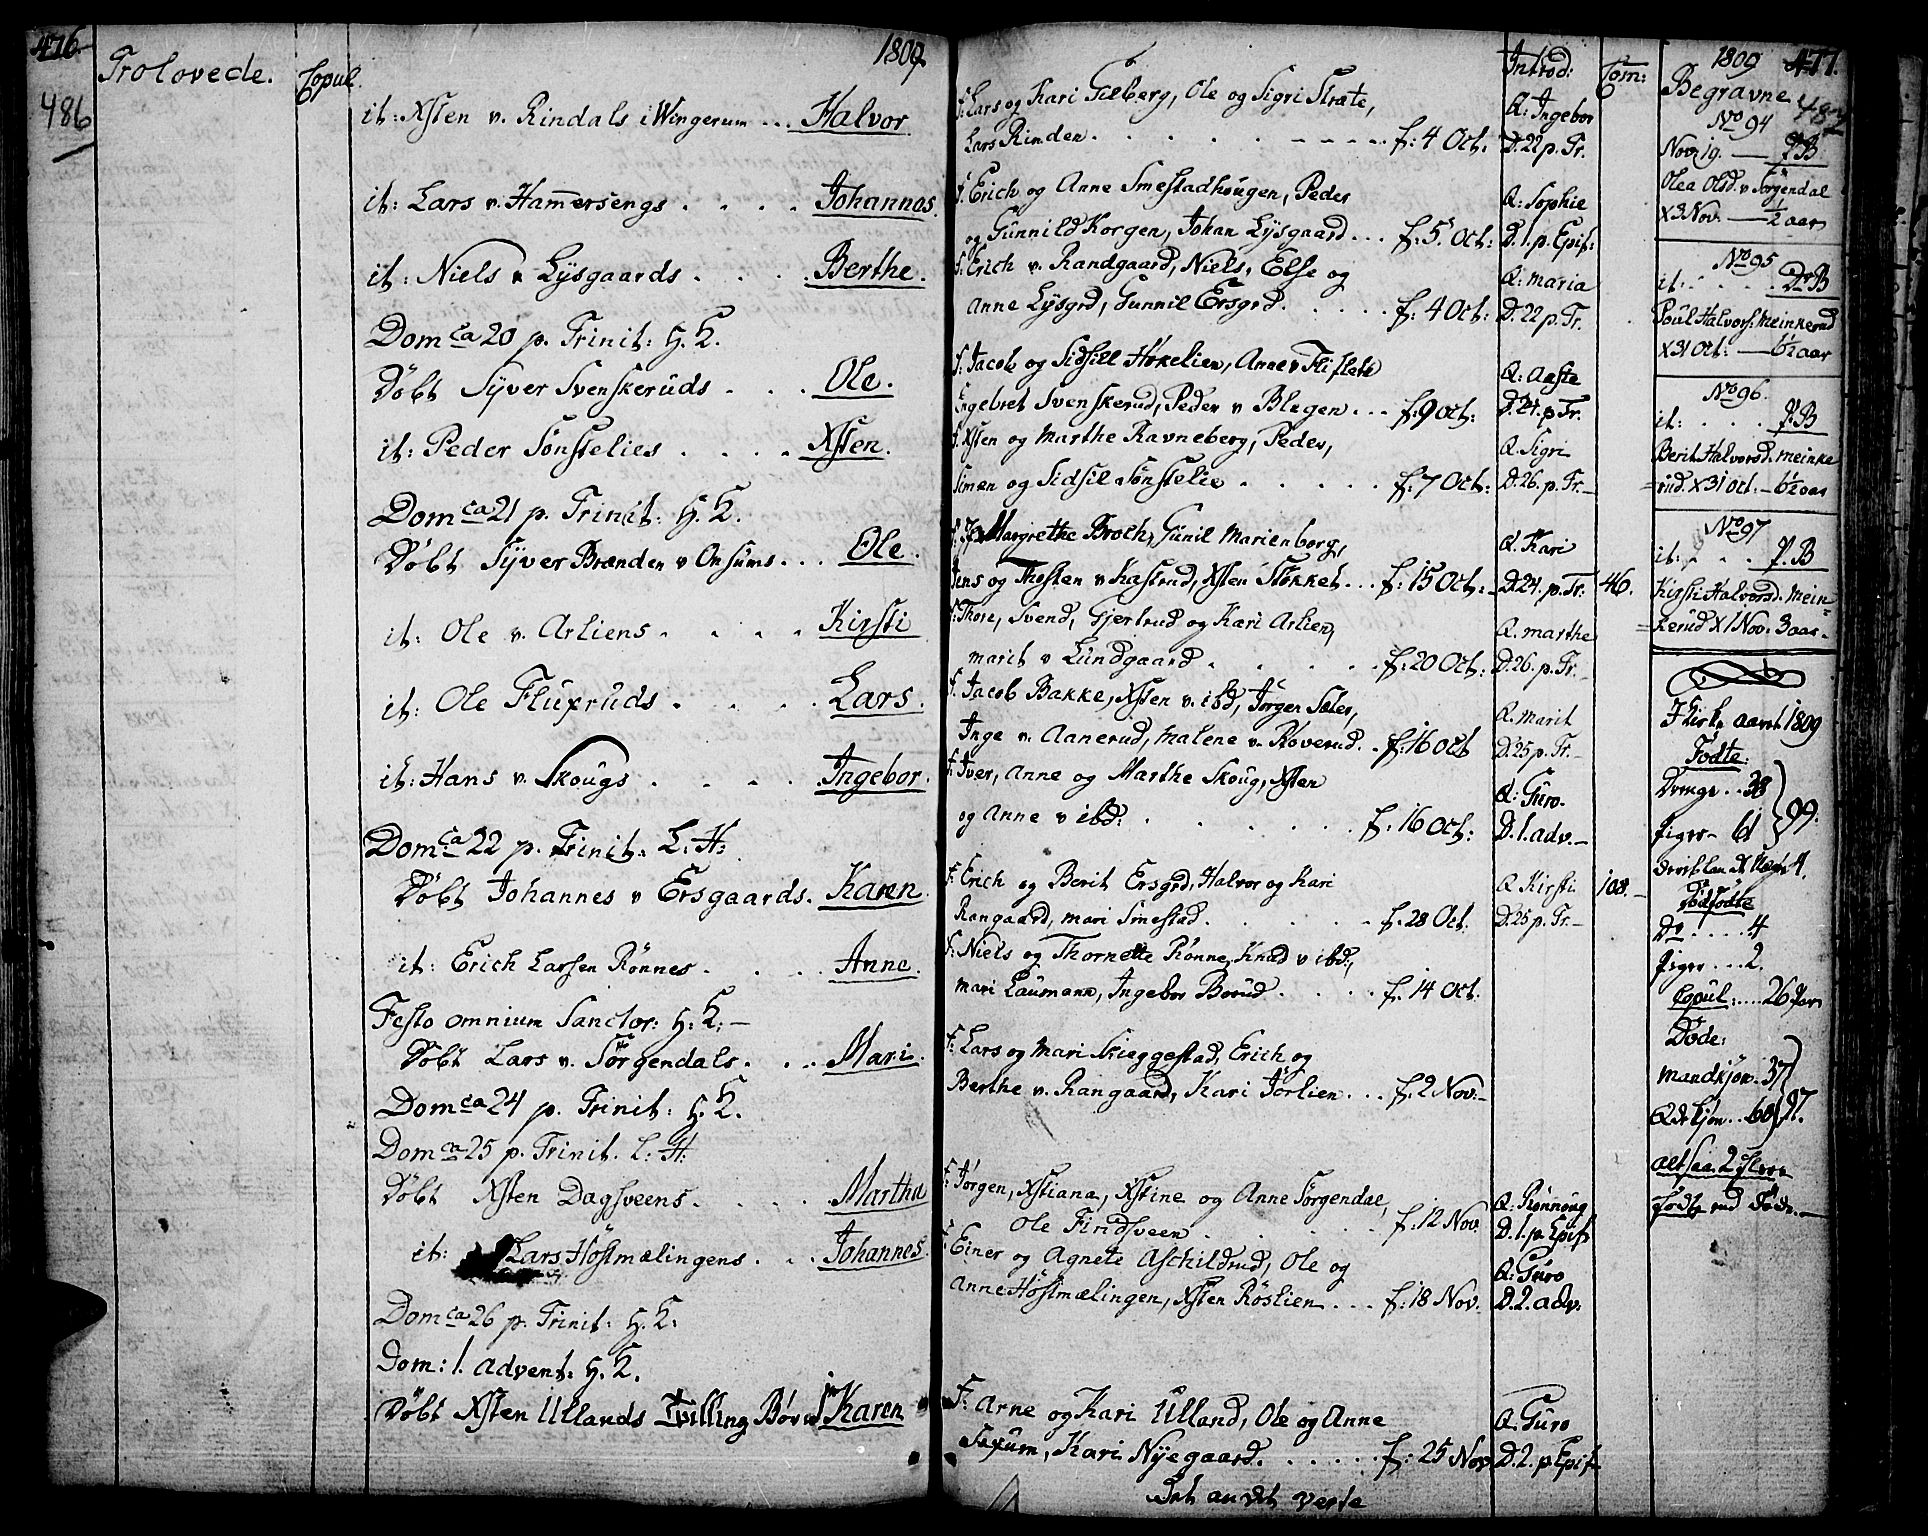 476
486
Trolovede.
Copul.
1809
it: Xsten v. Rindals i Wingerum ... Halvor
it: Lars v. Hamersengs . . . . Johannes.
it: Niels v Lysgaards . . . . Berthe.
Dom ca 20 p. Trinit: H. K.
Døbt Syver Svenskeruds . . . Ole.
it: Peder Sønstelies . . . . Xsten.
Dom ca 21 p. Trinit: H. K.
Døbt Syver Brænden v Onsums . . . Ole.
it: Ole v. Arliens . . . . Kirsti
it: Ole Fluxruds . . . . Lars.
it: Hans v. Skougs . . . . Ingebor.
Dom ca 22 p. Trinit: L. H:
Døbt Johannes v Ersgaards. Karen.
it: Erich Larsen Rönnes . . . . Anne.
Festo omnium Sanctor: H. K. —
Døbt Lars v. Sörgendals . . . Mari.
Dom ca 24 p. Trinit: H. K.
Dom ca 25 p. Trinit. L: H:
Døbt Xsten Dagsveens . . . . Marthe
it: Lars Höstmælingens . . . Johannes.
Dom ca 26 p. Trinit: H. K:
Dom: 1. Advent: H. K.
Døbt Xsten Ullands Tvilling Børn Karen
F: Lars og Kari Gilberg, Ole og Sigri Stræte,
Lars Rinden . . . . . . . . f: 4 Oct:
F: Erich og Anne Smestadhougen, Peder
og Gunnild Korgen, Johan Lysgaard ... f: 5. Oct:
F: Erich v. Randgaard, Niels, Else og
Anne Lysgrd, Gunnil Ersgrd . . . . . f: 4 Oct:
F: Jacob og Sidsill Hökelien, Anne v Fliflete
Engebret Svenskerud, Peder v Blegen ... f: 9 Oct:
F. Xsten og Marthe Ravneberg, Peder,
Simen og Sidsil Sönstelie . . . . . f: 7 Oct:
Margrethe Broch, Gunil Marienborg,
Jens og Thosten v Kastrud, Xsten Stokket ... f: 15 Oct:
F: Thore, Svend, Gjertrud og Kari Arlien,
Marit v Lundgaard . . . . . f: 20 Oct:
F. Jacob Bakke, Xsten v. ibd, Jörgen Sæter,
Inge v. Aanerud, Malene v. Roverud .. f: 16 Oct
F: Iver, Anne og Marthe Skoug, Xsten
og Anne v ibd: . . . . . . f. 16 Oct:
F: Erich og Berit Ersgrd, Halvor og Kari
Rangaard, Mari Smestad . . . . . f. 28 Oct.
F: Niels og Thornette Rönne, Knud v ibd.,
Mari Laumann, Ingebor Borud . . . . f. 14 Oct.
F: Lars og Mari Skieggestad, Erich og
Berthe v. Rangaard, Kari Jörlien ... f. 2 Nov: —
F: Jörgen, Xstiana, Xstine og Anne Sörgendal,
Ole Findsveen . . . . . f: 12 Nov
F: Einer og Agnete Aschildrud, Ole og
Anne Höstmælingen, Xsten Röslien ... f: 18 Nov.
F: Arne og Kari Ulland, Ole og Anne
Saxum, Kari Nyegaard . . . . . . f: 25 Nov
Det andet verte
Introd:
Q: Ingebor
D. 22 p. Tr.
Q: Sophie
D. 1. p. Epif:
Q: Maria
D. 22 p. Tr.
Q: Aaste
D. 24. p Tr.
Q: Sigri
D. 26. p. Tr. —
Q. Kari
D. 24. p. Tr.
Q. Marthe
D. 26. p. Tr. —
Q. Marit
D. 25 p. Tr. —
Q: Guro.
D. 1. adv. —
Q. Kirsti.
D. 25 p. Tr. —
Q: Rønnoug
D. 1. p. Epif
Q: Guro
D. 2. adv.
Q. Guro
D. 2. p Epif
Com:
46.
108. —
1809
477.
487
Begravne
No 94
Nov. 19. — P. B
Olea Olsd. v Sörgendal
X 3 Nov. — 1/2 aar
No 95
it: . . . . Do B
Poul Halvors: Meinkerud
X 31 Oct: — 6 1/2 aar
No 96.
it: . . . . P. B
Berit Halvorsd. Meinke
=rud. X 31 Oct. — 6 1/2 aar
No 97
it: . . . P. B
Kirsti Halvorsd. Mein=
=kerud X 1 Nov: 3 aar.
I Kirke aaret 1809
Fødte:
Drenge . . 38
Piger — 61 } 99.
Dödfødte
Do . . . . 4
Piger . . . 2.
Copul: . . . . 26 Par
Døde:
Mandkjøn. 37
Qdekjøn . . 60 } 97.
altsaa 2 flere
fødte end døde. —